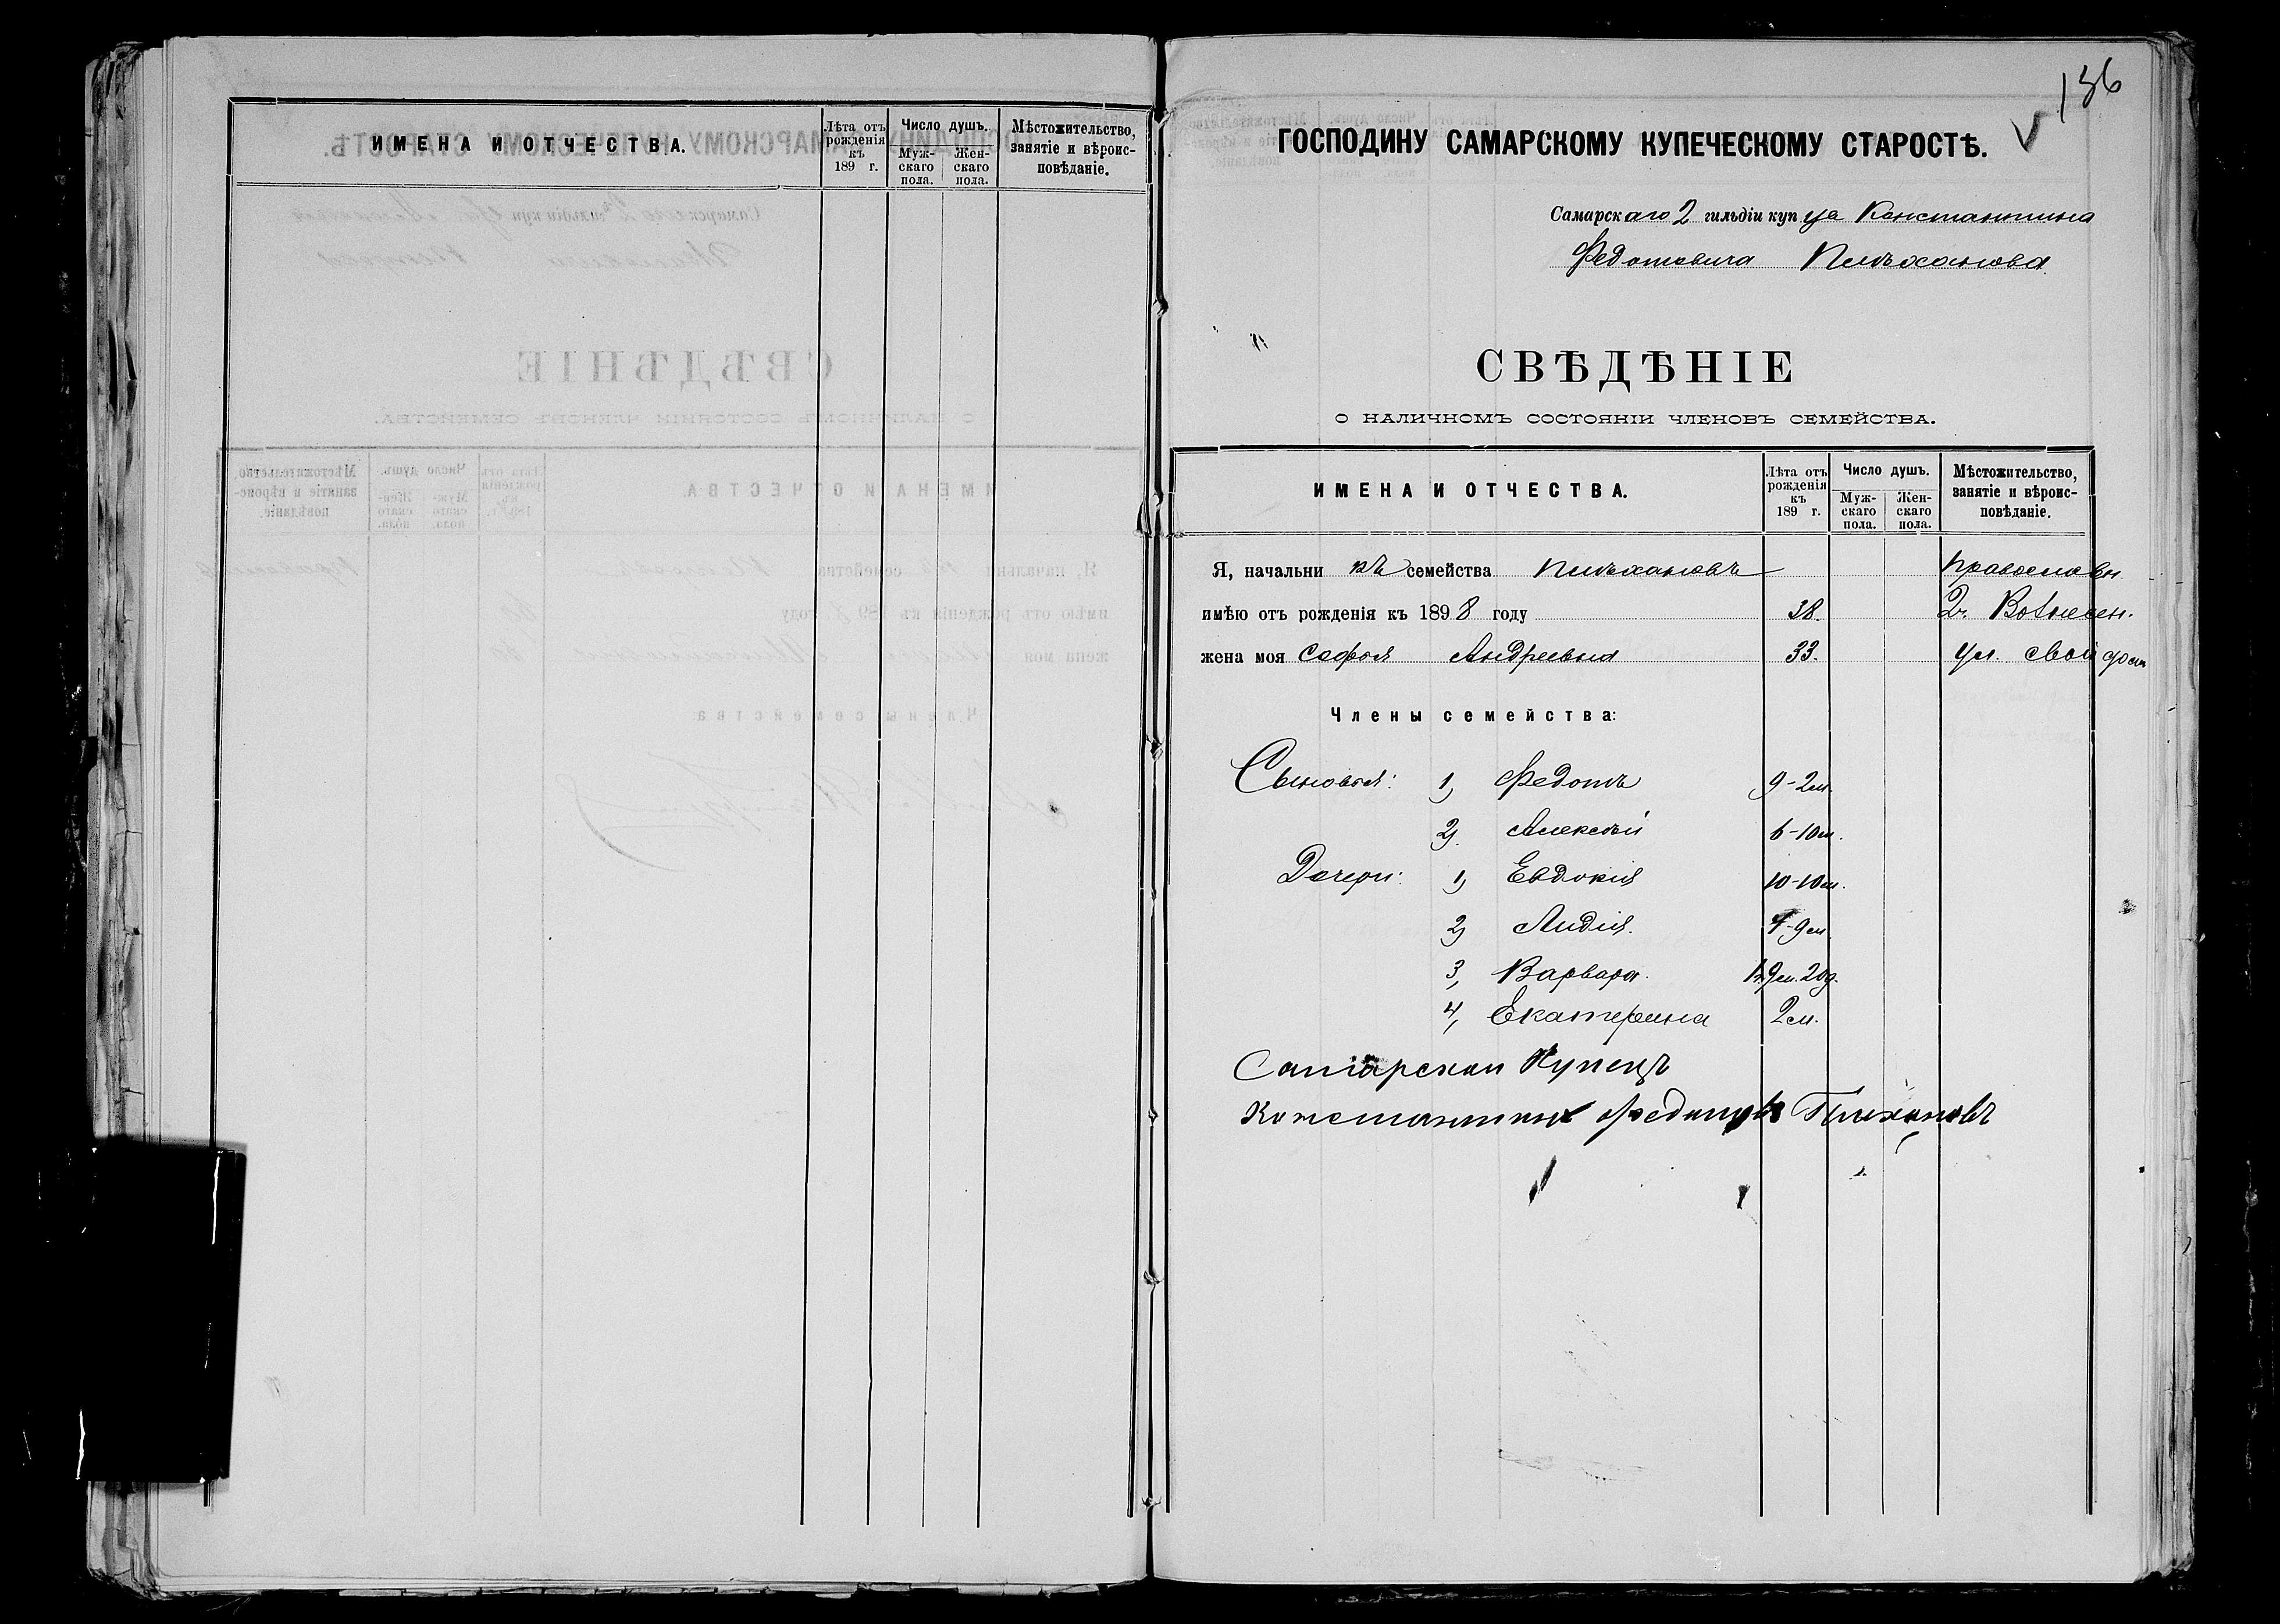 ИМЕНА И ОТЧЕСТВА.
Лѣта отъ рожденія къ 189 г.
Число душъ.
Мужскаго пола.
Женскаго пола.
Мѣстожительство, занятіе и вѣроисповѣданіе.
136
ГОСПОДИНУ САМАРСКОМУ КУПЕЧЕСКОМУ СТАРОСТѢ.
Самарскаго 2 гильдіи купца Константина
Федотовича Плѣханова
СВѢДѢНІЕ
О НАЛИЧНОМЪ СОСТОЯНІИ ЧЛЕНОВЪ СЕМЕЙСТВА.
ИМЕНА И ОТЧЕСТВА.
Лѣта отъ рожденія къ 189 г.
Число душъ.
Мужскаго пола.
Женскаго пола.
Мѣстожительство, занятіе и вѣроисповѣданіе.
Я, начальникъ семейства Плѣхановъ Православн
имѣю отъ рожденія къ 1898 году 38. 2ч. Вознесен.
жена моя Софья Андреевна 33. ул. свой дом
Члены семейства:
Сыновья: 1, Федотъ 9-2м.
2, Алексѣй 6-10м.
Дочери: 1, Евдокия 10-10м.
2, Лидия. 4-9м.
3, Варвара. 1г.9м.20д.
4, Екатерина 2м.
Самарскии Купецъ
Константинъ Федотовъ Плихановъ